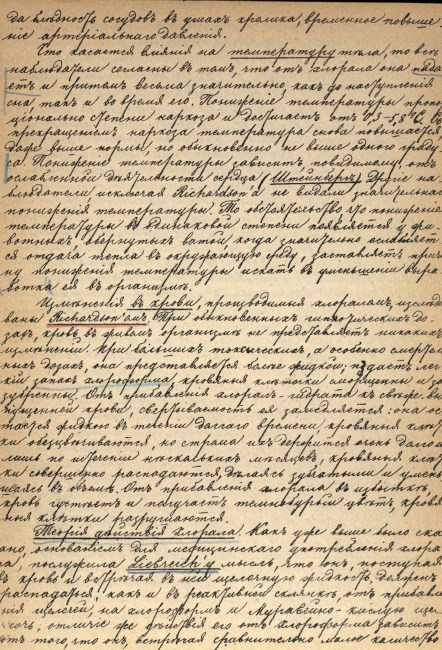 да блѣдность сосудовъ въ ушахъ кролика, временное повыше-
ніе артеріальнаго давленія.
Что касается вліянія на температуру тѣла, то всѣ
наблюдатели согласны въ томъ, что отъ хлорала она пада-
етъ и притомъ весьма значительно, какъ до наступленія
сна, такъ и во время его. Пониженіе температуры пропор-
ціонально степени наркоза и достигаетъ отъ 0,5–5,8°С. Съ
прекращеніемъ наркоза температура снова повышается
даже выше нормы, но обыкновенно не выше одного граду-
са. Пониженіе температуры зависитъ, повидимому, отъ
ослабленной дѣятельности сердца (Штейнбергъ). Другіе на-
блюдатели исключая Richardson'a не видали значительнаго
пониженія температуры. То обстоятельство что пониженіе
температуры въ одинаковой степени появляется у жи-
вотныхъ, обернутыхъ ватой когда значительно ослабляется
отдача тепла въ окружающую среду, заставляетъ причи-
ну пониженія температуры искать въ уменьшеніи выра-
ботка ея въ организмѣ.
Измѣненія въ крови, производимыя хлораломъ, изслѣдо-
ваны Richardson'омъ. При обыкновенныхъ гипнотическихъ до-
захъ, кровь въ живомъ организмѣ не представляетъ никакихъ
измѣненій. При большихъ токсическихъ, а особенно смертель-
ныхъ дозахъ, она представляется болѣе жидкою; издаетъ лег-
кій запахъ хлороформа, кровяныя клѣтки сморщенны и за-
зубренны. Отъ прибавленія хлоралъ-гидрата къ свѣже-вы-
пущенной крови, свертываемость ея замедляется: она ос-
тается жидкою въ теченіи долгаго времени, кровяныя клѣт-
ки обезцвѣчиваются, но строма ихъ держится очень долго и
лишь по истеченіи нѣсколькихъ мѣсяцевъ, кровяныя клѣт-
ки совершенно распадаются, дѣлаясь зубчатыми и умень-
шаясь въ объемѣ. Отъ прибавленія хлорала въ избыткѣ,
кровь густѣетъ и получаетъ темнобурый цвѣтъ, кровя-
ныя клѣтки разрушаются.
Теорія дѣйствія хлорала. Какъ уже выше было ска-
зано, основаніемъ для медицинскаго употребленія хлора-
ла, послужила Liebreich'у мысль, что онъ, поступая
въ кровь и встрѣчая въ ней щелочную жидкость, долженъ
распадаться, какъ и въ реактивной стклянкѣ, отъ прибавле-
нія щелочей, на хлороформъ и муравейно-кислую ще-
лочь; отличіе же дѣйствія его отъ хлороформа зависитъ
отъ того, что онъ, встрѣчая сравнительно малое количество